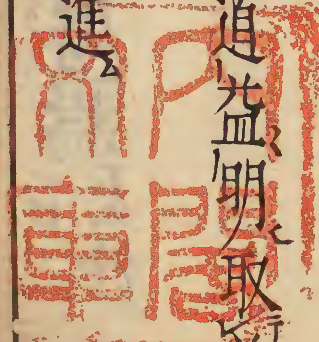 道益明取
進
内閣
文庫